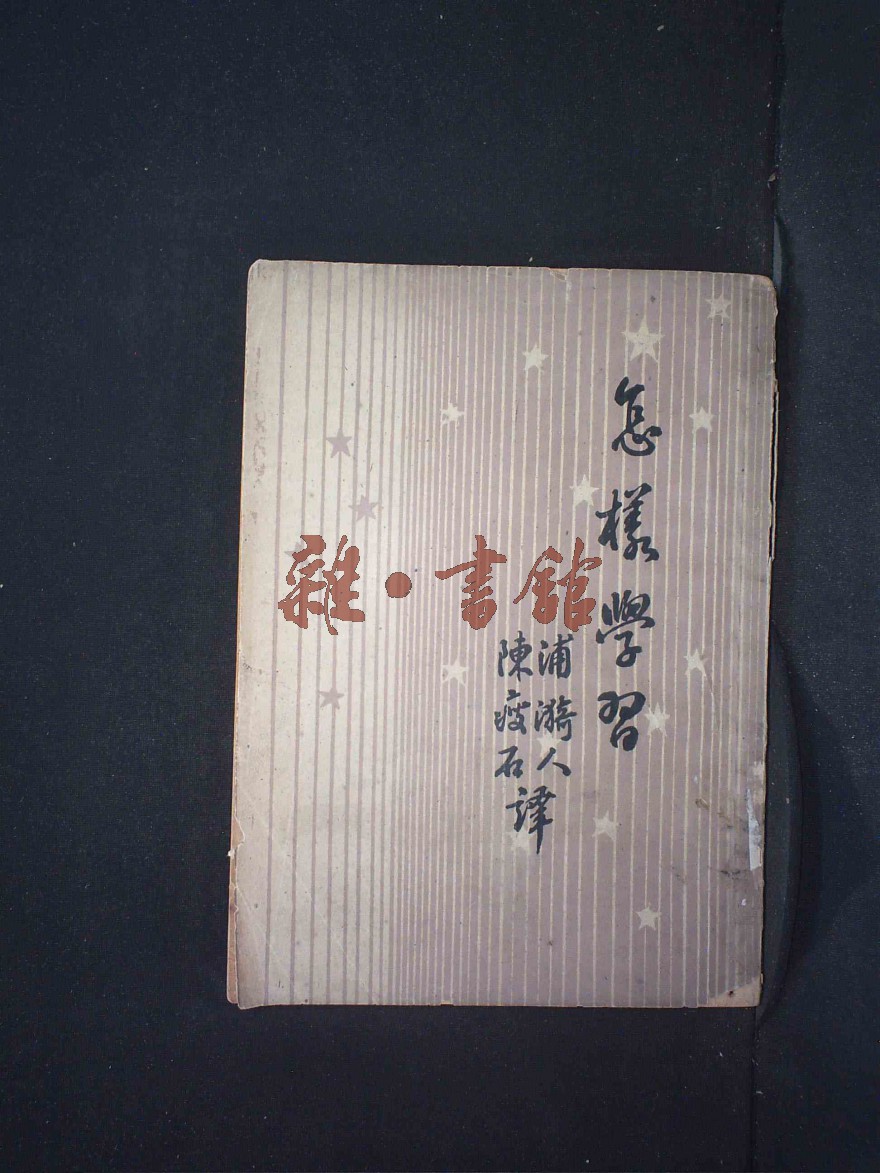 怎樣學習
浦漪人
陳瘦石
譯
雜·書館